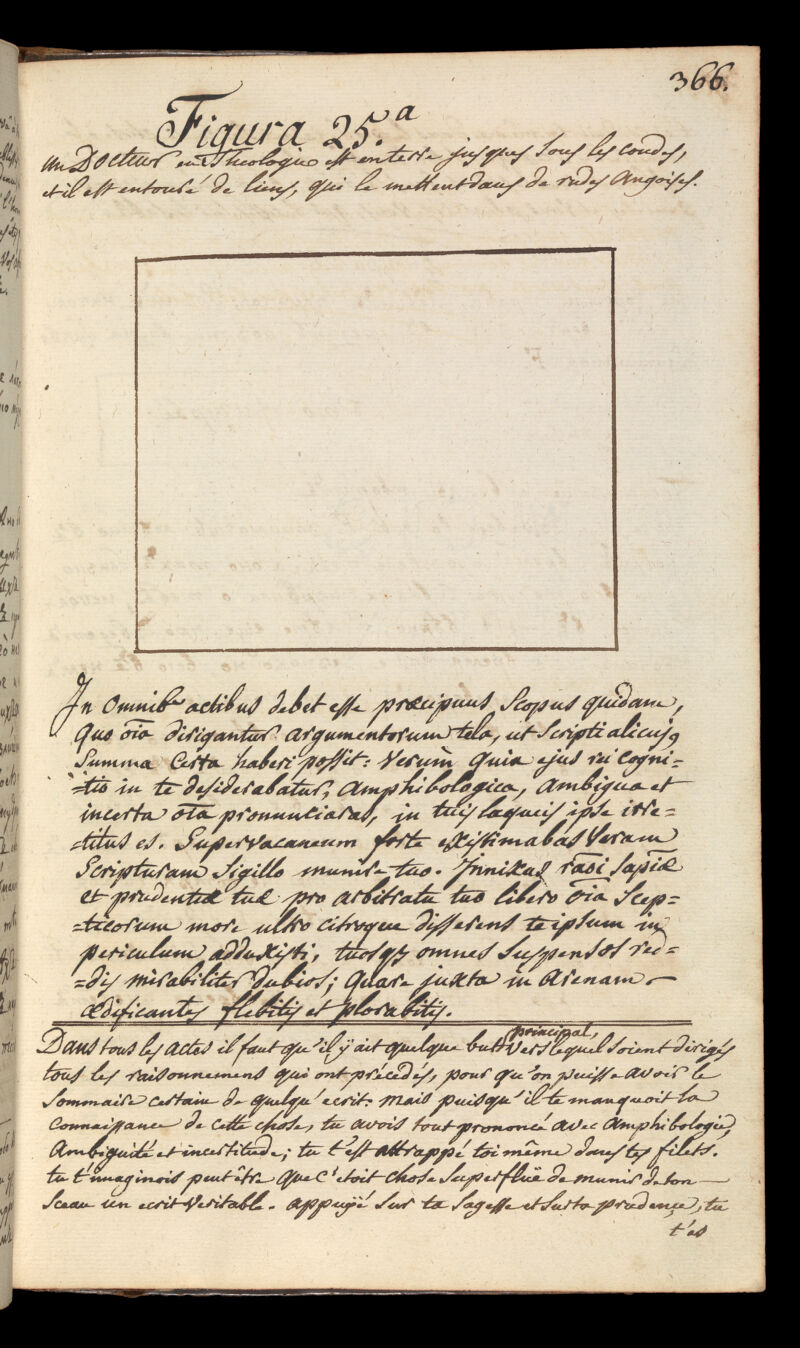 366.
Figura 25.a
un Docteur en Theologie est en terre jusques sous les coudes,
et il est entouré de liens, qui le mettent dans de rudes Angoises.
In omnibus actibus debet esse præcipuus Scopus quidam,
quo oia dirigantur argumentorum tela, ut Scripti alicujus
Summa Certa haberi possit: Verum quia ejus rei cogni-
-tio in te desiderabatur, Amphibologica, Ambigua et
incerta oia pronunciaras, in tuis laqueis ipse irre-
-titus es. Supervacaneum forte existimabas Veram
Scripturam Sigillo munire tuo. Innixus raoi Sapiæ
et prudentiæ tuæ pro arbitratu tuo libero oia Scep-
-ticorum more ultro citroque differens te ipsum in
periculum adduxisti, tuosq3 omnes Suspensos red-
-dis mirabiliter dubios; quare juxta in arenam
ædificantes flebitis et plorabitis.
Dans tous les actes il faut qu'il ÿ ait quelque but principal, vers lequel soient dirigés
tous les raisonnemens qui ont précedés, pour qu'on puisse avoir le
Sommaire certain de quelqu'ecrit: mais puisqu'il te manquoit la
connaissance de cette chose, tu avois tout prononcé avec Amphibologie,
Ambiguité et incertitude; tu t'est attrappé toi même dans tes filets.
tu t'imaginois peut être que c'etoit chose Superfluë de munir de ton
Sceau un ecrit Veritable. appuÿé sur ta Sagesse et sur ta prudence, tu
t'es